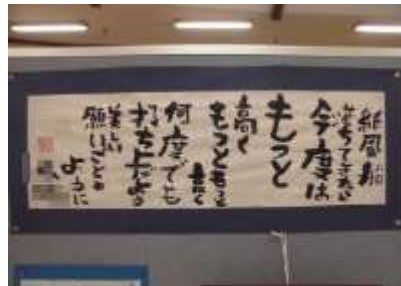 紙風船
落ちてきたら
今度は
もっと
高く
もっともっと
高く
何度でも
打ち上げよう
美しい
願いごとの
ように